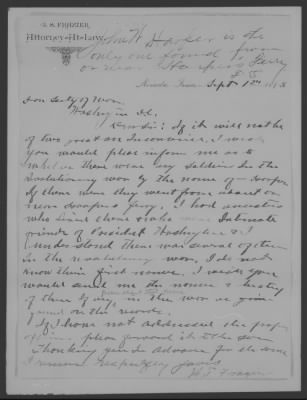 G. S. FRAZIER,
Attorney-At-Law.
John W Harper is the
only one found from
or near Harpers Ferry
Sept 1st
Hon Secty of War.
Washington D.C.
Dear Sir: If it will not be
of too great an Inconvenience, I wish
you would please inform me as to
whether there were any soldiers in the
Revolutionary war by the name of Harper
If there were they went from about or
near Harpers Ferry, I had ancestors
who lived there & also were Intimate
friends of President Washington & I
understand there was several of them
in the revolutionary war, I do not
know their first names, I wish you
would send me the names & history
of them if any in the war as given
on the records.
If I have not addressed the proper
please forward it to the same
Thanking you in advance for the same
I remain respectfully yours
Frazier